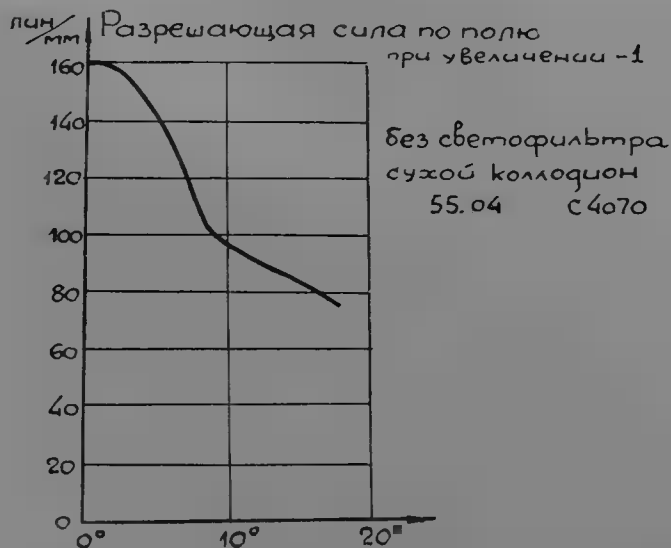 лин/мм
Разрешающая сила по полю
при увеличении -1
без светофильтра
сухой коллодион
55.04 С4070
160
140
120
100
80
60
40
20
0
0° 10° 20°